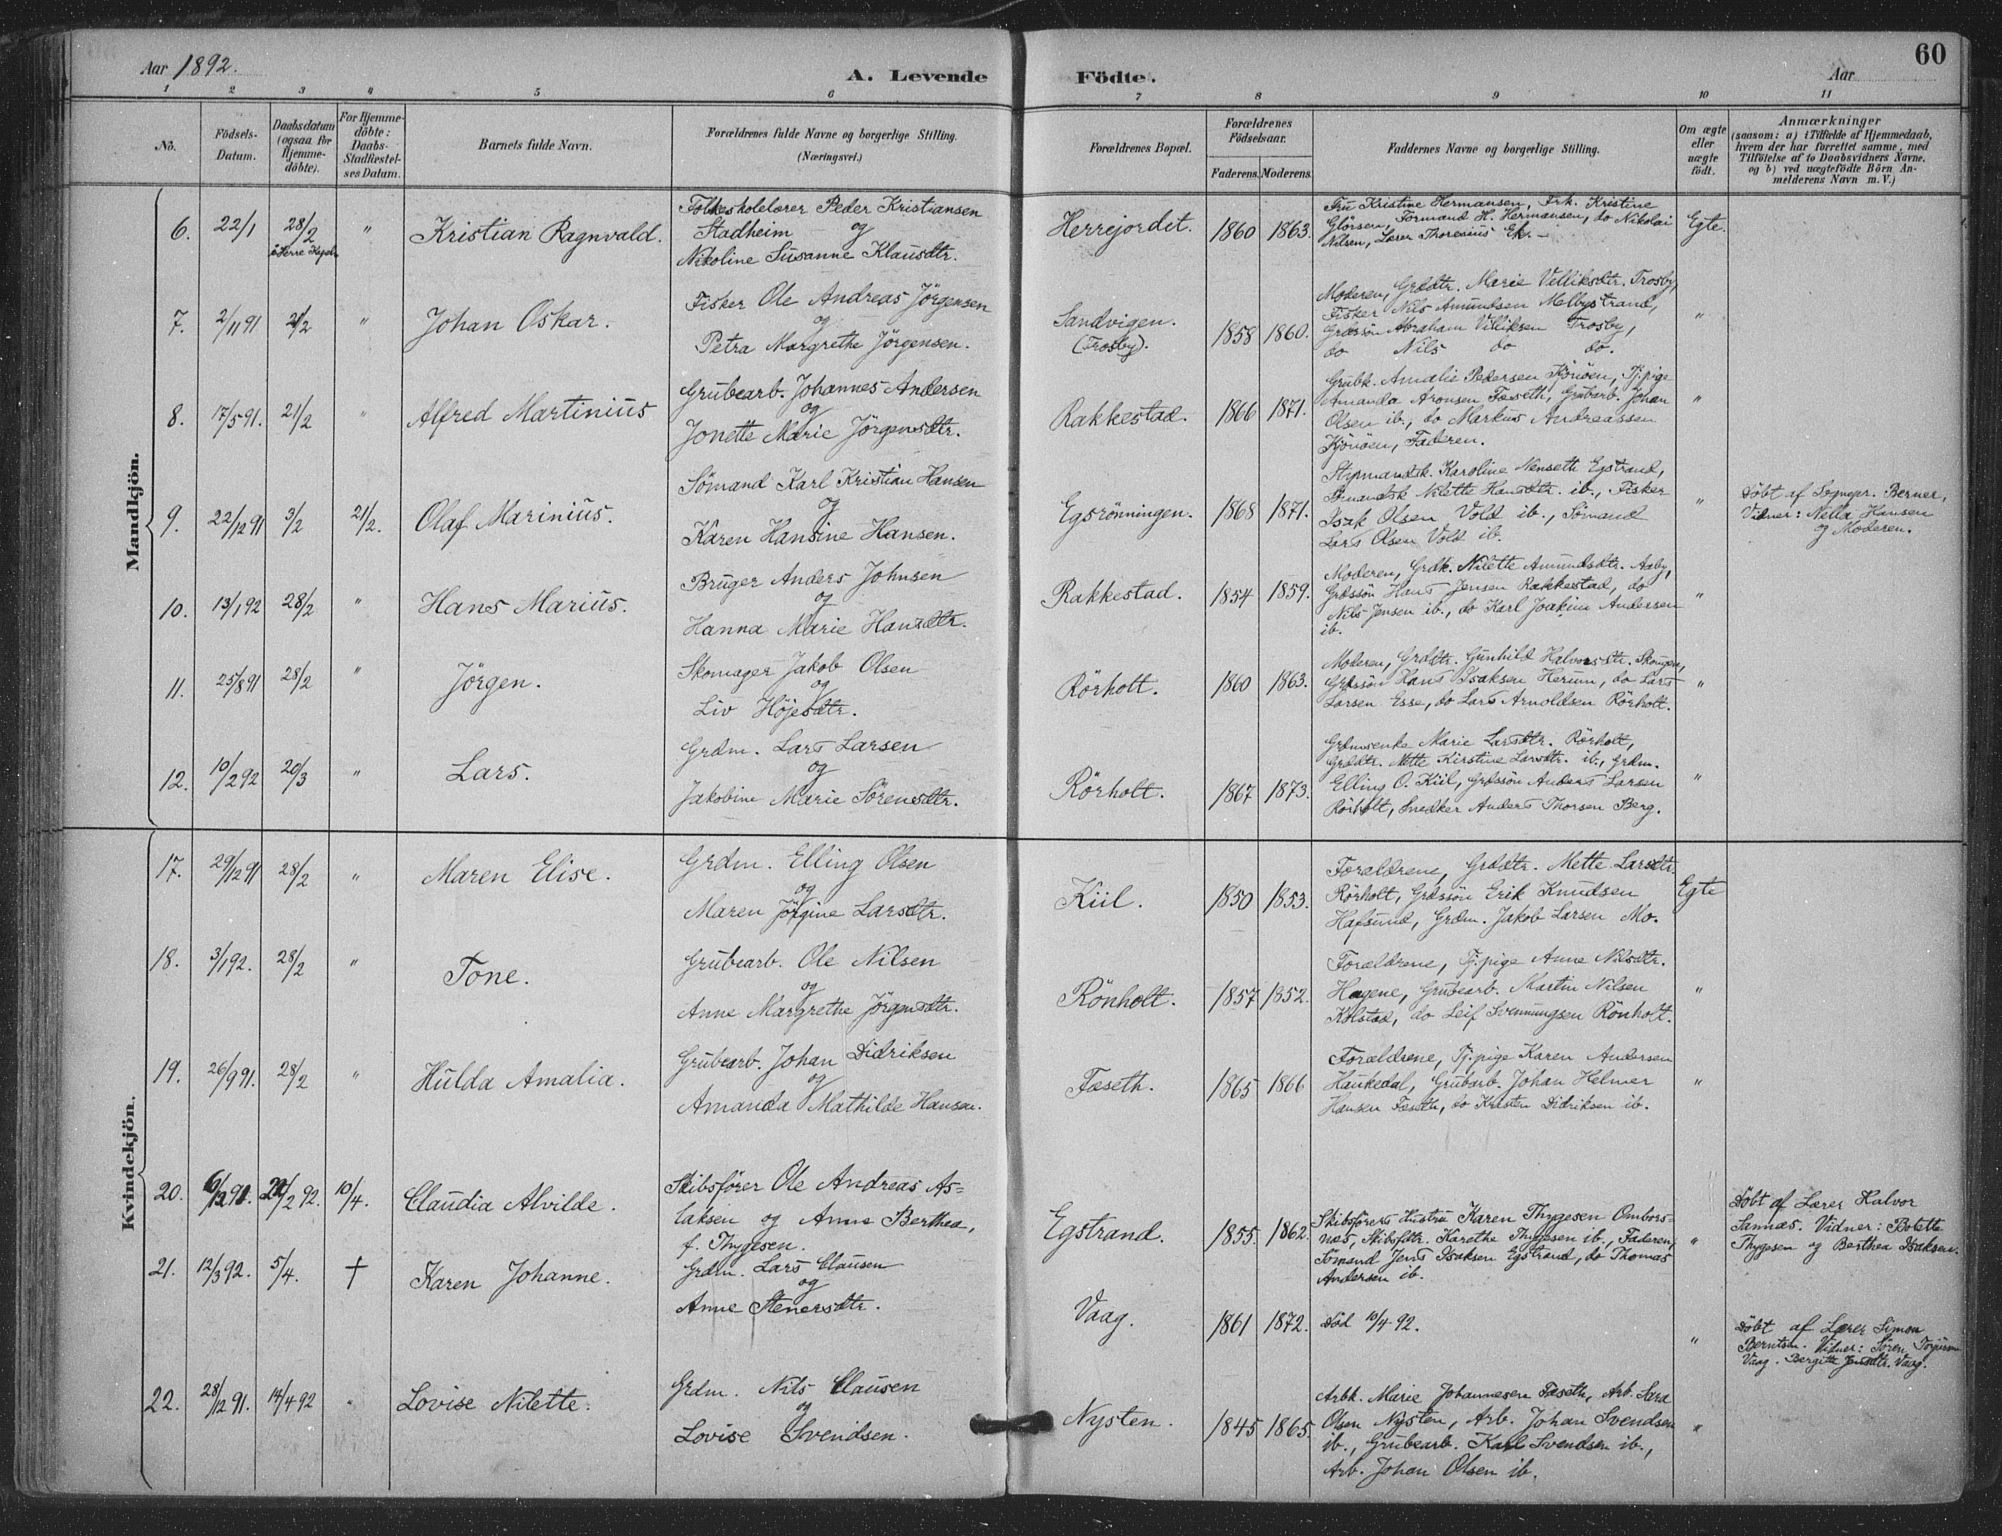 Aar 1892.
A. Levende Födte.
Aar
60
1 2 3 4 5 6 7 8 9 10 11
Nö.
Födsels-Datum.
Daabsdatum (ogsaa for Hjemmedöbte).
For Hjemmedöbte: Daabs-Stadfæstelses Datum.
Barnets fulde Navn.
Forældrenes fulde Navne og borgerlige Stilling.
(Næringsvei.)
Forældrenes Bopæl.
Forældrenes Födselsaar.
Faderens. Moderens.
Faddernes Navne og borgerlige Stilling.
Om ægte eller uægte födt.
Anmærkninger
(saasom: a) i Tilfælde af Hjemmedaab,
hvem der har forrettet samme, med
Tilföielse af to Daabsvidners Navne.
og b) ved uægtefödte Börn Anmelderens Navn m. V.)
Mandkjön.
6. 22/1 28/2 i Herre Kapel " Kristian Ragnvald.
Folkeskolelærer Peder Kristiansen
Stadheim og
Nikoline Susanne Klausdtr.
Herrejordet. 1860 1863.
Fru Kristine Hermansen, Frk. Kristine
Glörsen, Formand H. Hermansen, do Nikolai
Nilsen, Lærer Thorenius Ek.
Egte.
7. 2/11 91 21/2 " Johan Oskar.
Fisker Ole Andreas Jörgensen
og
Petra Margrethe Jörgensen.
Sandvigen.
(Trosby).
1858 1860.
Moderen, Grddtr. Marie Villiksdtr. Trosby,
Fisker Nils Amundsen Melbystrand,
Grdssön Abraham Villiksen Trosby,
do Nils do do.
"
8. 17/5 91. 21/2 " Alfred Martinius
Grubearb. Johannes Andersen
og
Jonette Marie Jörgensdtr.
Rakkestad. 1866 1871.
Grubk. Amalie Pedersen Kjönöen, Tj.pige
Amanda Aronsen Fæseth, Grubarb. Johan
Olsen ib., do Markus Andreassen
Kjönöen, Faderen.
"
9. 22/12 91 3/2 21/2. Olaf Marinius.
Sömand Karl Kristian Hansen
og
Karen Hansine Hansen.
Egsrönningen. 1868 1871.
Stymandsk. Karoline Nenseth Egstrand,
Sömandsk Nilette Hansdtr. ib., Fisker
Isak Olsen Vold ib., Sömand
Lars Olsen Vold ib.
"
Döbt af Sognepr. Berner,
Vidner: Nella Hansen
og Moderen.
10. 13/1 92 28/2 " Hans Marius.
Bruger Anders Johnsen
og
Hanna Marie Hansdtr.
Rakkestad. 1854 1859.
Moderen, Grdk. Nilette Amundsdtr. Aaby,
Grdssön Hans Jensen Rakkestad, do
Nils Jensen ib., do Karl Joakim Andersen
ib.
"
11. 25/8 91 28/2 " Jörgen.
Skomager Jakob Olsen
og
Liv Höjesdtr.
Rörholt. 1860 1863.
Moderen, Grddtr. Gunhild Halvorsdtr. Skougen,
Grdssön Hans Isaksen Herum, do Lars
Larsen Esse, do Lars Arnoldsen Rörholt.
"
12. 10/2 92 20/3 " Lars.
Grdm. Lars Larsen
og
Jakobine Marie Sörensdtr.
Rörholt. 1867 1873.
Grdmsenke Marie Larsdtr. Rörholt,
Grddtr. Mette Kirstine Larsdtr. ib., Grdm.
Elling O. Kiil, Grdssön Anders Larsen
Rörholt, Snedker Anders Thorsen Berg.
"
Kvindekjön.
17. 29/12 91 28/2 " Maren Elise.
Grdm. Elling Olsen
og
Maren Jörgine Larsdtr.
Kiil. 1850 1853.
Forældrene, Grddtr. Mette Larsdtr.
Rörholt, Grdssön Erik Knudsen
Hafsund, Grdm. Jakob Larsen Mo.
Egte
18. 3/1 92. 28/2 " Tone.
Grubearb. Ole Nilsen
og
Anne Margrethe Jörgensdtr.
Rönholt. 1857 1852.
Forældrene, Tj.pige Anne Nilsdtr.
Hagene, Grubearb. Martin Nilsen
Kolstad, do Leif Svennungsen Rönholt.
"
19. 26/9 91. 28/2 " Hulda Amalia.
Grubearb. Johan Didriksen
og
Amanda Mathilde Hansen.
Fæseth. 1865 1866
Forældrene, Tj.pige Karen Andersen
Haukedal, Grubarb. Johan Helmer
Hansen Fæseth, do Kristen Didriksen ib.
"
20. 6/12 91. 24/2 92. 10/4. Claudia Alvilde.
Skibsförer Ole Andreas As-
laksen og Anne Berthea,
f. Thygesen.
Egstrand. 1855. 1862.
Skibsförers Hustru Karen Thygesen Ombors-
næs, Skibsfdtr. Karethe Thygesen ib., Faderen,
Sömand Jens Isaksen Egstrand, do Thomas
Andersen ib.
"
Döbt af Lærer Halvor
Sannæs. Vidner: Bolette
Thygesen og Berthea Isaksen.
21. 12/3 92. 5/4. † Karen Johanne.
Grdm. Lars Clausen
og
Anne Stenersdtr.
Vaag. 1861 1872. Död 10/4 92.
"
Döbt af Lærer Simon
Berntsen. Vidner: Sören Torjusen
Vaag. Bergitte Jensdtr. Vaag.
22. 28/12 91. 14/4 92 " Lovise Nilette.
Grdm. Nils Clausen
og
Lovise Svendsen.
Nysten. 1845 1865.
Arbk. Marie Johannesen Fæseth, Arb. Lars
Olsen Nysten, Arb. Johan Svendsen
ib., Grubearb. Karl Svendsen ib.,
Arb. Johan Olsen ib.
"